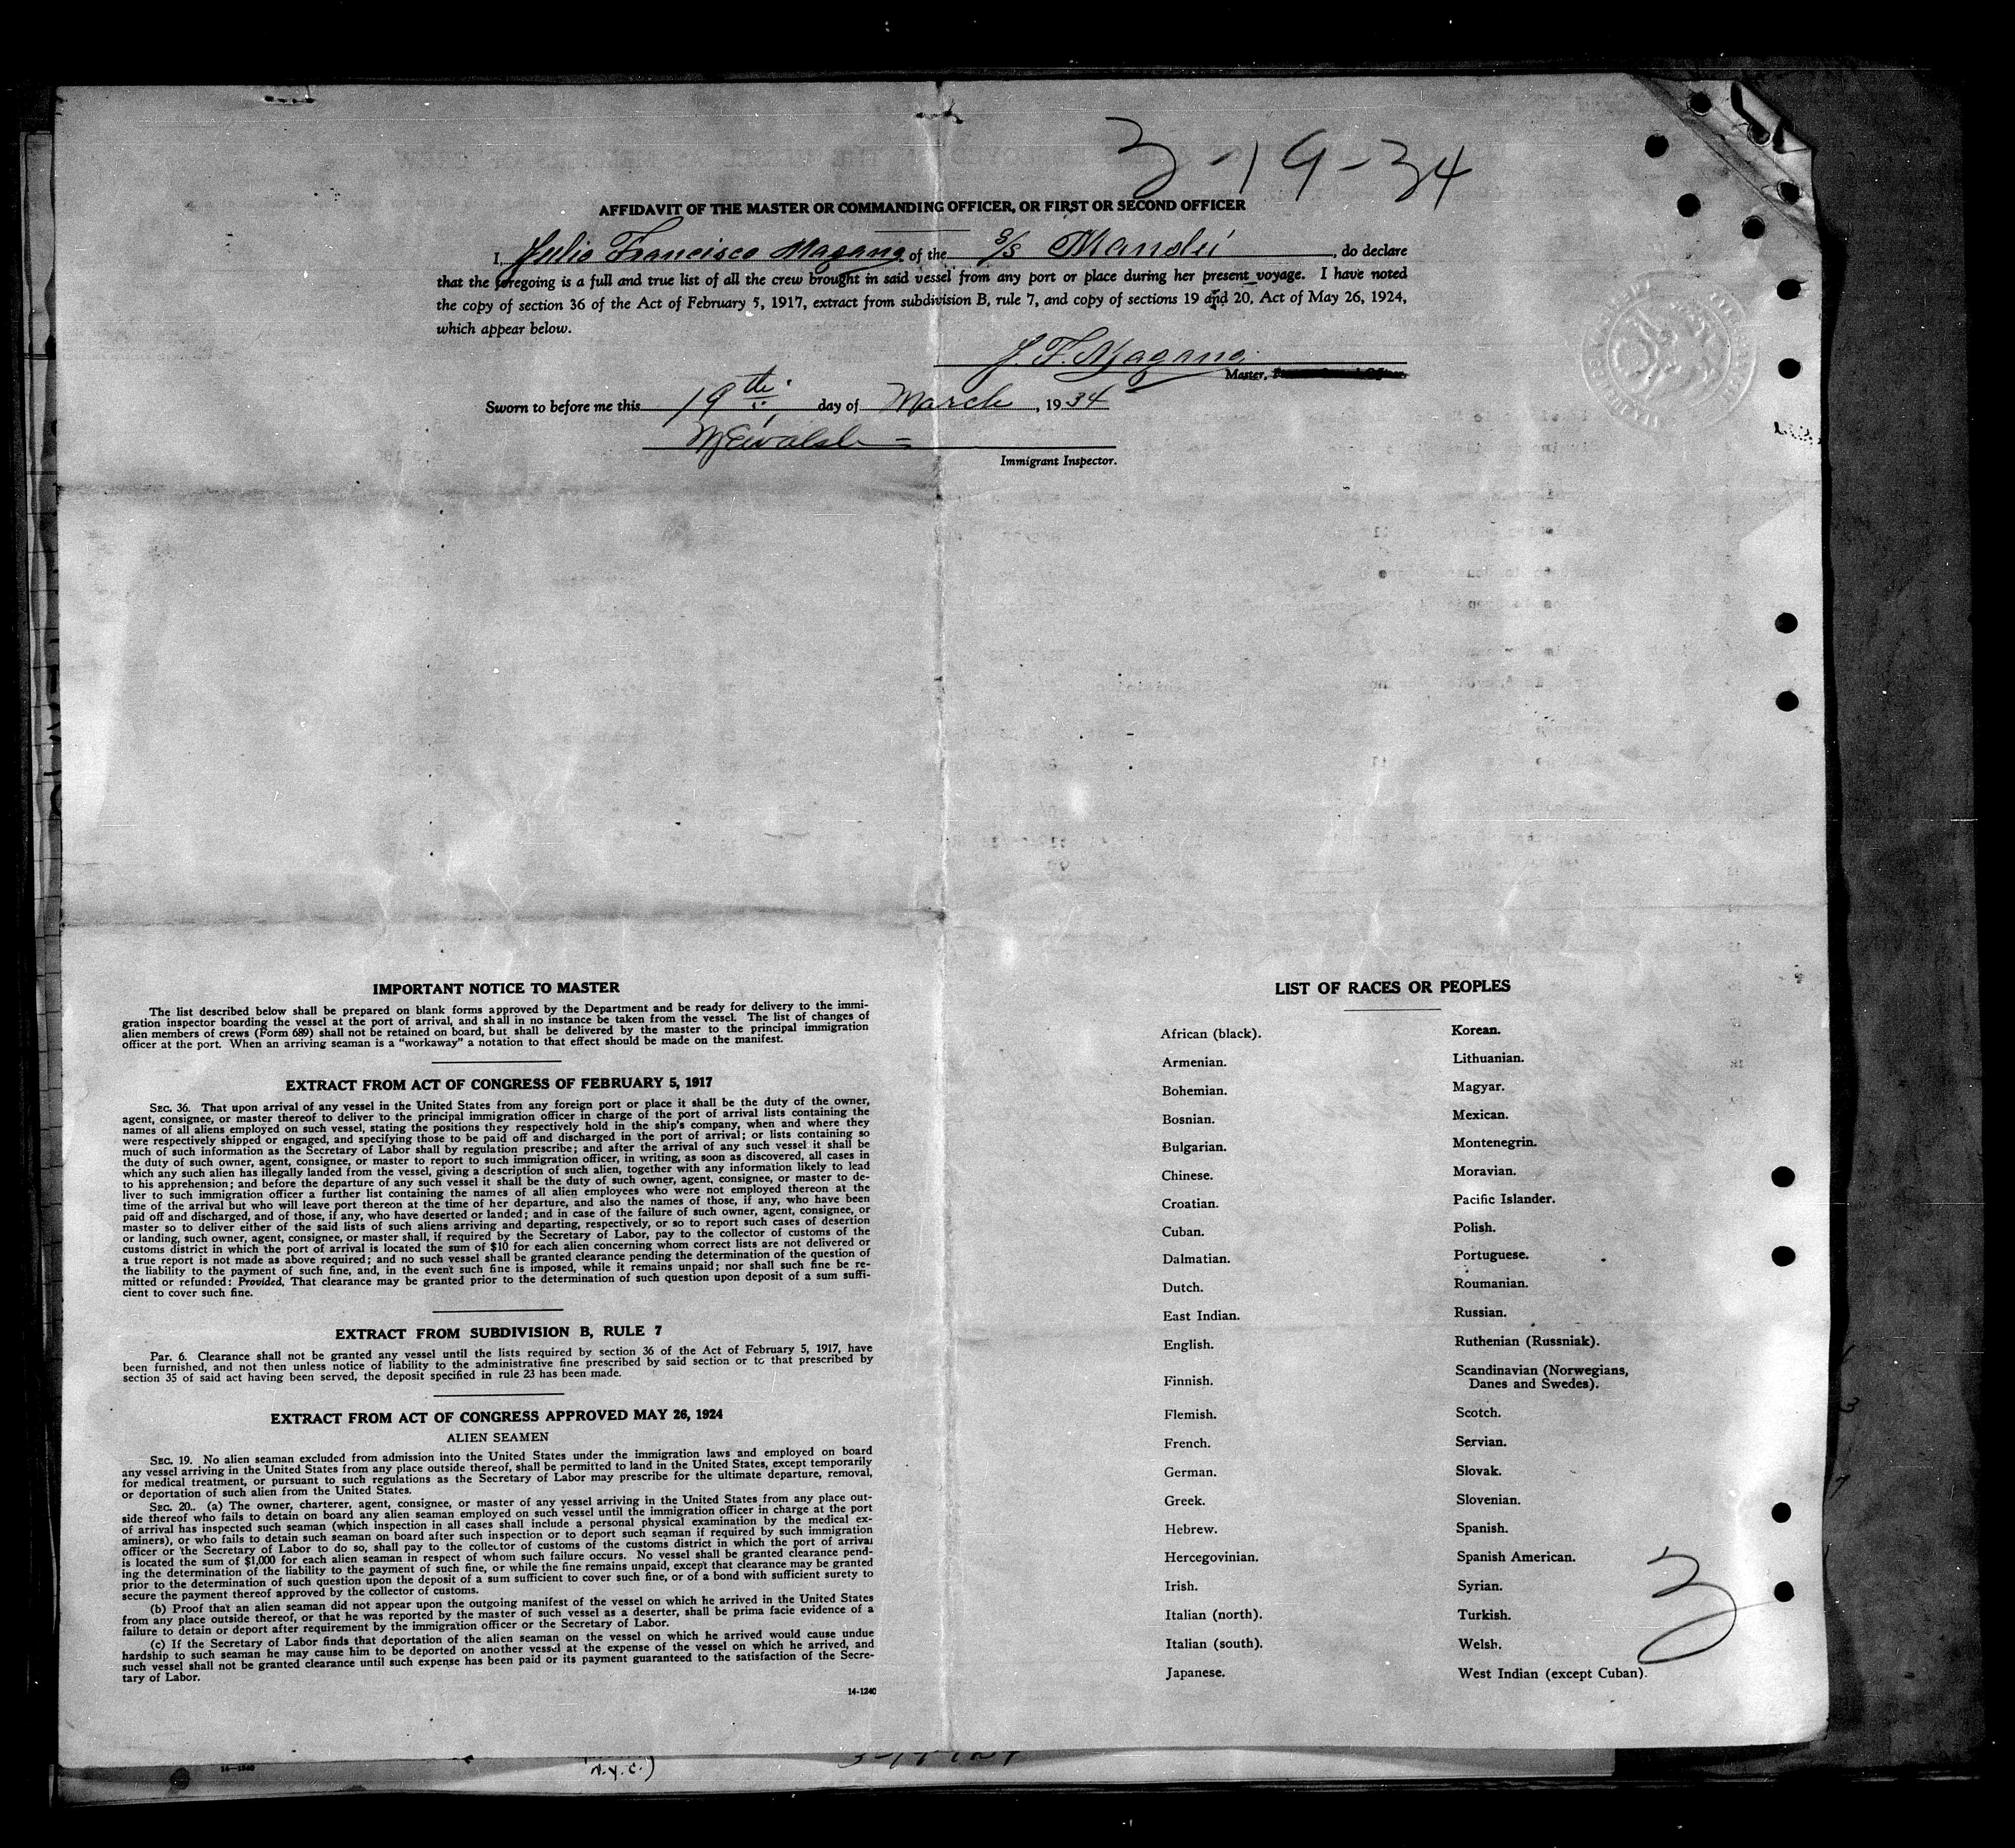 3-19-34
AFFIDAVIT OF THE MASTER OR COMMANDING OFFICER, OR FIRST OR SECOND OFFICER
I, Julio Francisco Magano of the S/S Mandú, do declare
that the foregoing is a full and true list of all the crew brought in said vessel from any port or place during her present voyage. I have noted
the copy of section 36 of the Act of February 5, 1917, extract from subdivision B, rule 7, and copy of sections 19 and 20, Act of May 26, 1924,
which appear below.
J. F. Magano
Master,
Sworn to before me this 19th day of March, 1934
Immigrant Inspector.
IMPORTANT NOTICE TO MASTER
The list described below shall be prepared on blank forms approved by the Department and be ready for delivery to the immi-
gration inspector boarding the vessel at the port of arrival, and shall in no instance be taken from the vessel. The list of changes of
alien members of crews (Form 689) shall not be retained on board, but shall be delivered by the master to the principal immigration
officer at the port. When an arriving seaman is a "workaway" a notation to that effect should be made on the manifest.
EXTRACT FROM ACT OF CONGRESS OF FEBRUARY 5, 1917
SEC. 36. That upon arrival of any vessel in the United States from any foreign port or place it shall be the duty of the owner,
agent, consignee, or master thereof to deliver to the principal immigration officer in charge of the port of arrival lists containing the
names of all aliens employed on such vessel, stating the positions they respectively hold in the ship's company, when and where they
were respectively shipped or engaged, and specifying those to be paid off and discharged in the port of arrival; or lists containing so
much of such information as the Secretary of Labor shall by regulation prescribe; and after the arrival of any such vessel it shall be
the duty of such owner, agent, consignee, or master to report to such immigration officer, in writing, as soon as discovered, all cases in
which any such alien has illegally landed from the vessel, giving a description of such alien, together with any information likely to lead
to his apprehension; and before the departure of any such vessel it shall be the duty of such owner, agent, consignee, or master to de-
liver to such immigration officer a further list containing the names of all alien employees who were not employed thereon at the
time of the arrival but who will leave port thereon at the time of her departure, and also the names of those, if any, who have been
paid off and discharged, and of those, if any, who have deserted or landed; and in case of the failure of such owner, agent, consignee, or
master so to deliver either of the said lists of such aliens arriving and departing, respectively, or so to report such cases of desertion
or landing, such owner, agent, consignee, or master shall, if required by the Secretary of Labor, pay to the collector of customs of the
customs district in which the port of arrival is located the sum of $10 for each alien concerning whom correct lists are not delivered or
a true report is not made as above required; and no such vessel shall be granted clearance pending the determination of the question of
the liability to the payment of such fine, and, in the event such fine is imposed, while it remains unpaid; nor shall such fine be re-
mitted or refunded: Provided, That clearance may be granted prior to the determination of such question upon deposit of a sum suffi-
cient to cover such fine.
EXTRACT FROM SUBDIVISION B, RULE 7
Par. 6. Clearance shall not be granted any vessel until the lists required by section 36 of the Act of February 5, 1917, have
been furnished, and not then unless notice of liability to the administrative fine prescribed by said section or to that prescribed by
section 35 of said act having been served, the deposit specified in rule 23 has been made.
EXTRACT FROM ACT OF CONGRESS APPROVED MAY 26, 1924
ALIEN SEAMEN
SEC. 19. No alien seaman excluded from admission into the United States under the immigration laws and employed on board
any vessel arriving in the United States from any place outside thereof, shall be permitted to land in the United States, except temporarily
for medical treatment, or pursuant to such regulations as the Secretary of Labor may prescribe for the ultimate departure, removal,
or deportation of such alien from the United States.
SEC. 20.. (a) The owner, charterer, agent, consignee, or master of any vessel arriving in the United States from any place out-
side thereof who fails to detain on board any alien seaman employed on such vessel until the immigration officer in charge at the port
of arrival has inspected such seaman (which inspection in all cases shall include a personal physical examination by the medical ex-
aminers), or who fails to detain such seaman on board after such inspection or to deport such seaman if required by such immigration
officer or the Secretary of Labor to do so, shall pay to the collector of customs of the customs district in which the port of arrival
is located the sum of $1,000 for each alien seaman in respect of whom such failure occurs. No vessel shall be granted clearance pend-
ing the determination of the liability to the payment of such fine, or while the fine remains unpaid, except that clearance may be granted
prior to the determination of such question upon the deposit of a sum sufficient to cover such fine, or of a bond with sufficient surety to
secure the payment thereof approved by the collector of customs.
(b) Proof that an alien seaman did not appear upon the outgoing manifest of the vessel on which he arrived in the United States
from any place outside thereof, or that he was reported by the master of such vessel as a deserter, shall be prima facie evidence of a
failure to detain or deport after requirement by the immigration officer or the Secretary of Labor.
(c) If the Secretary of Labor finds that deportation of the alien seaman on the vessel on which he arrived would cause undue
hardship to such seaman he may cause him to be deported on another vessel at the expense of the vessel on which he arrived, and
such vessel shall not be granted clearance until such expense has been paid or its payment guaranteed to the satisfaction of the Secre-
tary of Labor.
14-1240
LIST OF RACES OR PEOPLES
African (black).
Armenian.
Bohemian.
Bosnian.
Bulgarian.
Chinese.
Croatian.
Cuban.
Dalmatian.
Dutch.
East Indian.
English.
Finnish.
Flemish.
French.
German.
Greek.
Hebrew.
Hercegovinian.
Irish.
Italian (north).
Italian (south).
Japanese.
Korean.
Lithuanian.
Magyar.
Mexican.
Montenegrin.
Moravian.
Pacific Islander.
Polish.
Portuguese.
Roumanian.
Russian.
Ruthenian (Russniak).
Scandinavian (Norwegians,
Danes and Swedes).
Scotch.
Servian.
Slovak.
Slovenian.
Spanish.
Spanish American.
Syrian.
Turkish.
Welsh.
West Indian (except Cuban).
3
14-1240
N.Y.C.)